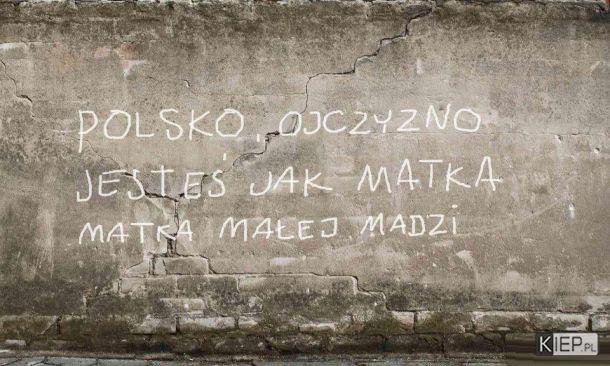 POLSKO, OJCZYZNO
JESTEŚ JAK MATKA
MATKA MAŁEJ MADZI
KIEP.PL